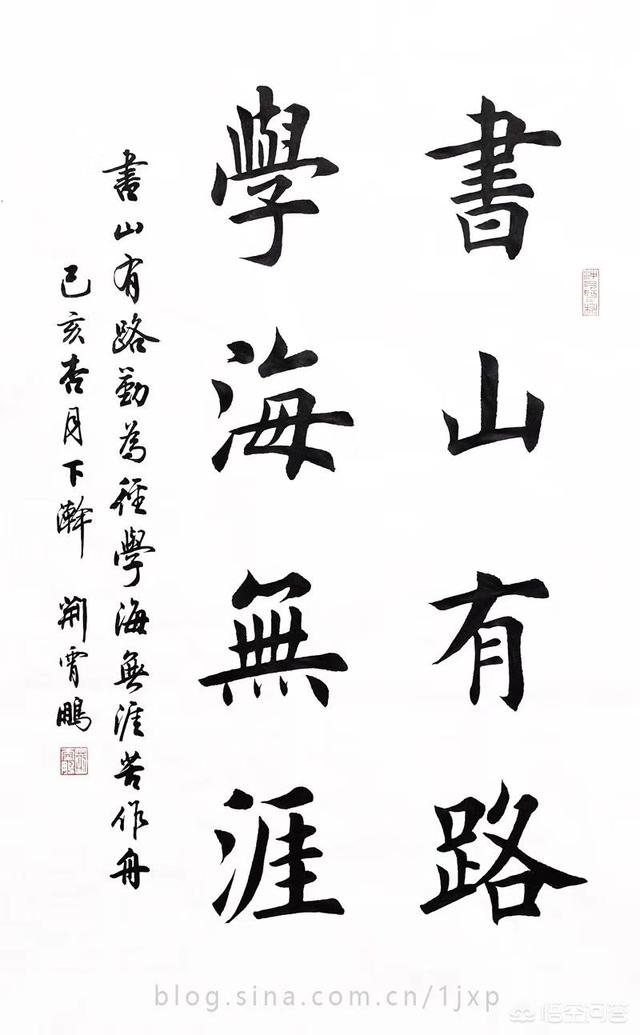 書山有路
學海無涯
書山有路勤為徑學海無涯苦作舟
己亥杏月下澣 荆霄鵬
blog.sina.com.cn/1jxp
悟空问答